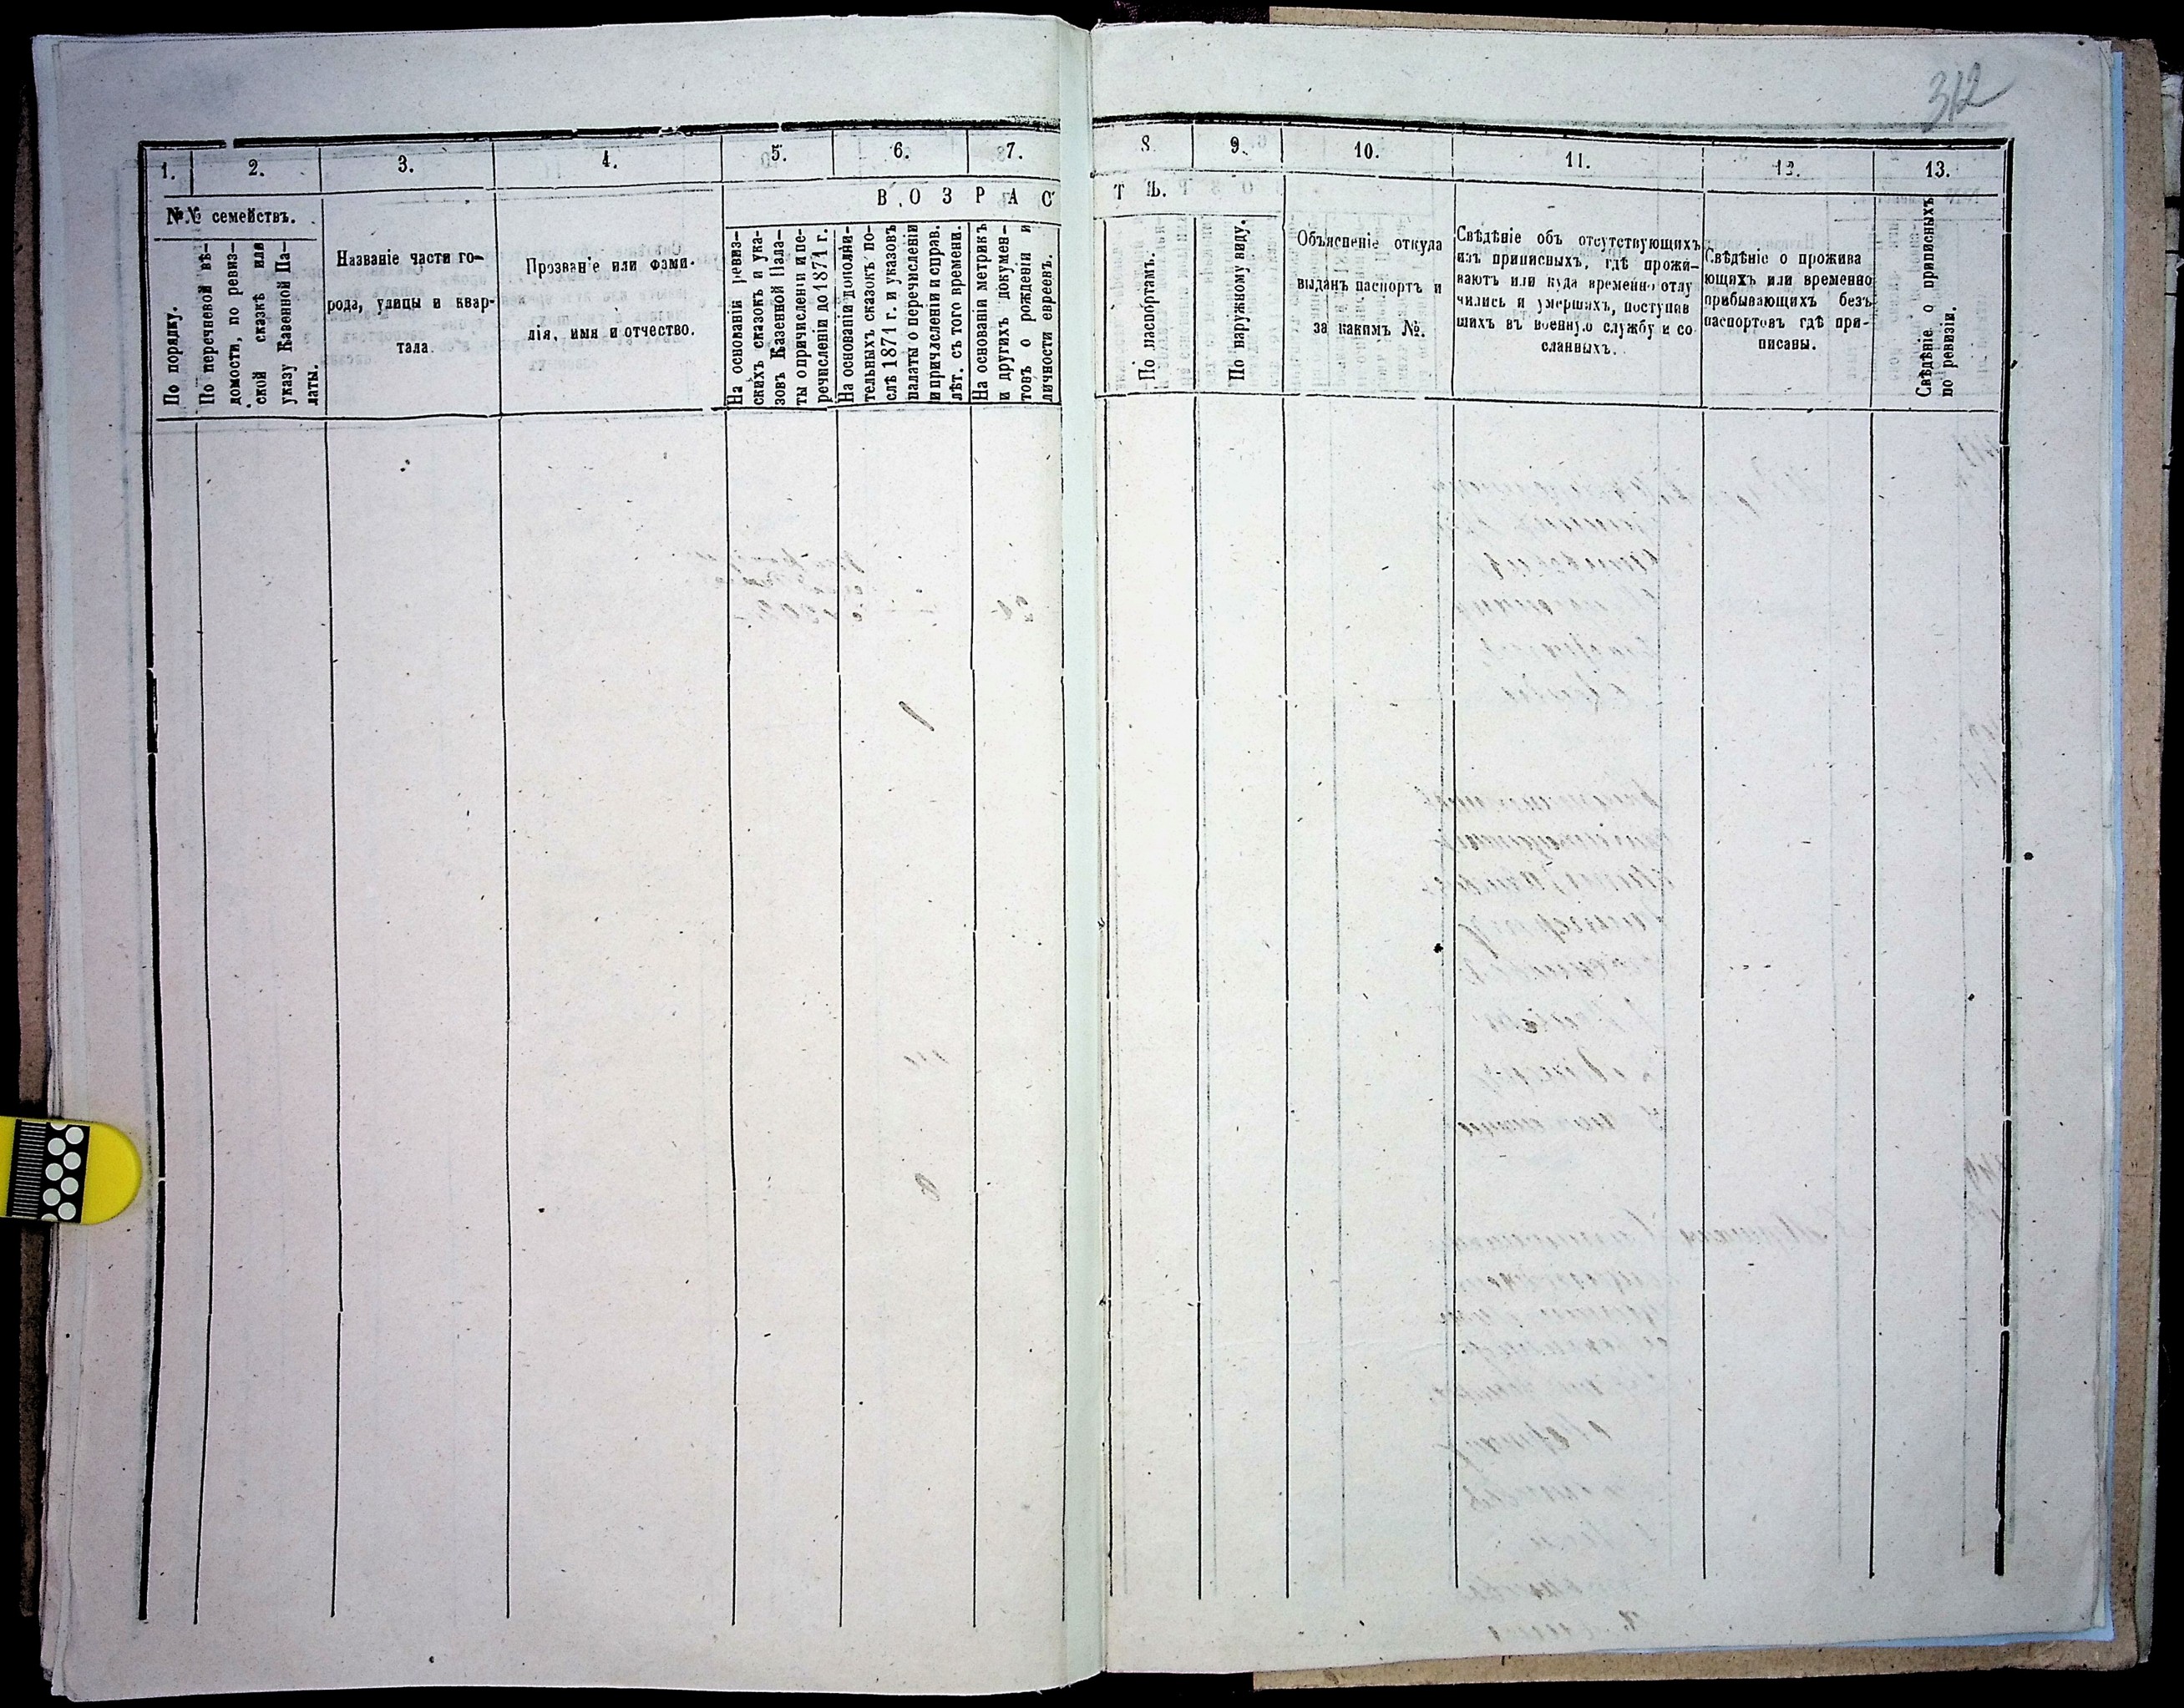 312
1. 2. 3. 4. 5. 6. 7. 8. 9. 10. 11. 12. 13.
№№ семействъ.
По порядку.
По перечневой вѣ-
домости, по ревиз-
ской сказкѣ или
указу Казенной Па-
латы.
Названіе части го-
рода, улицы и квар-
тала
Прозван'е или фами-
лія, имя и отчество.
ВОЗРАСТЪ.
На основаніи ревиз-
скихъ сказокъ и ука-
зовъ Казенной Пала-
ты о причисленіи и пе-
речисленіи до 1871 г.
На основаніи дополни-
тельныхъ сказокъ по-
слѣ 1871 г. и указовъ
палаты о перечисленіи
и причисленіи и справ.
лѣт. съ того времени.
На основаніи метрикъ
и другихъ докумен-
товъ о рожденіи и
личности евреевъ.
По паспортамъ.
По наружному виду.
Объясненіе откуда
выданъ паспортъ и
за какимъ №.
Свѣдѣніе объ отсутствующихъ
изъ приписныхъ, гдѣ прожи-
ваютъ или куда временно отлу
чились и умершихъ, поступив
шихъ въ военную службу и со
сланныхъ.
Свѣдѣніе о прожива
ющихъ или временно
прибывающихъ безъ
паспортовъ гдѣ при-
писаны.
Свѣдѣніе о приписныхъ
по ревизіи.